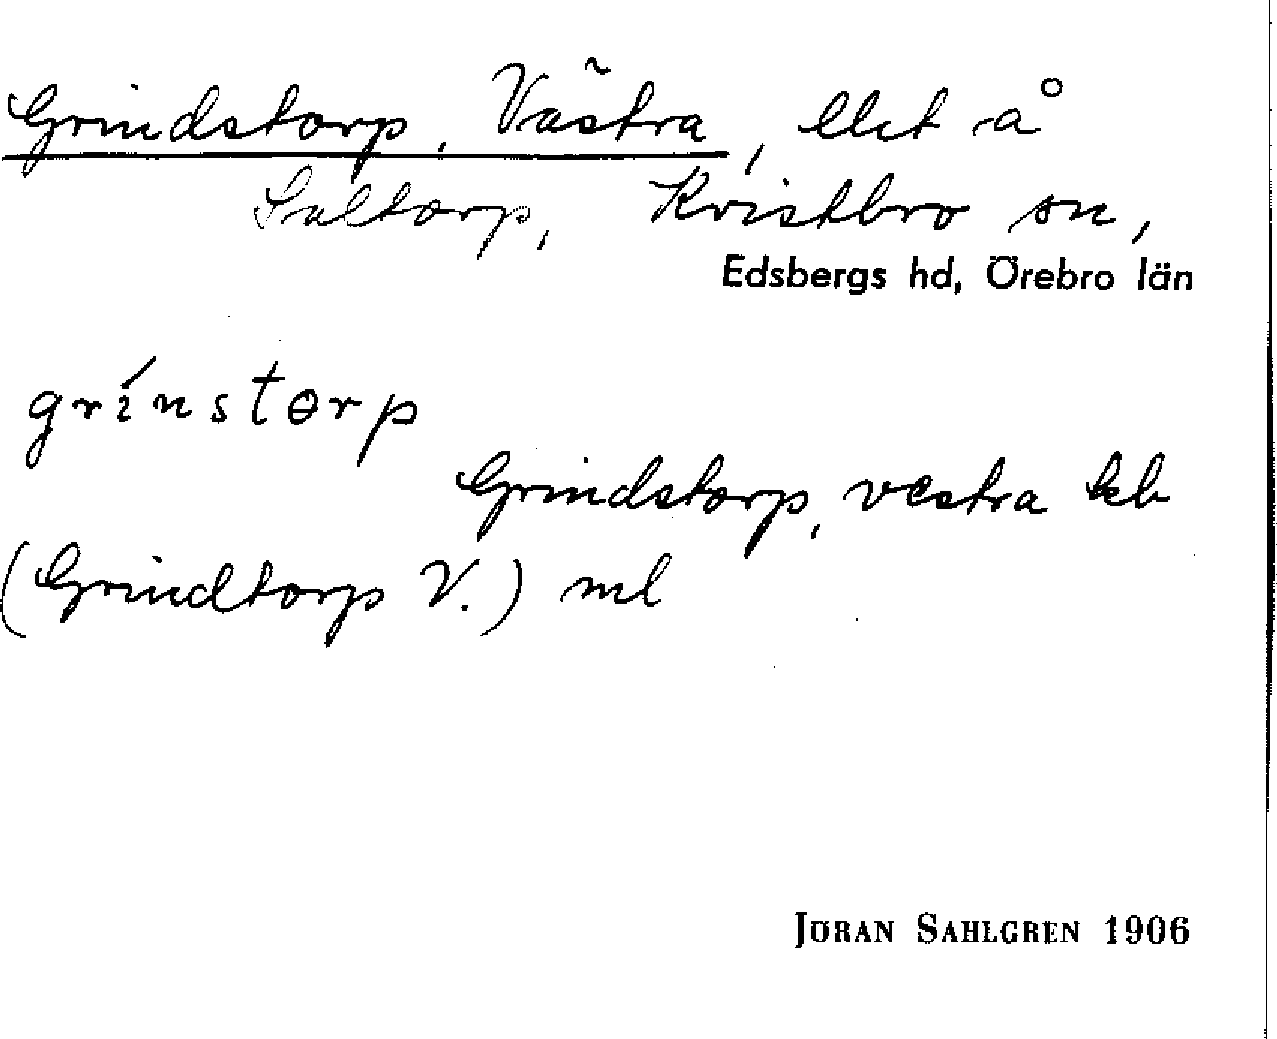 Grindstorp, Västra, llet å
Saltorp, Kvistbro sn,
Edsbergs hd, Örebro län
grínstorp
Grindstorp, vestra kb
(Grindtorp V.) ml
JÖRAN SAHLGREN 1906